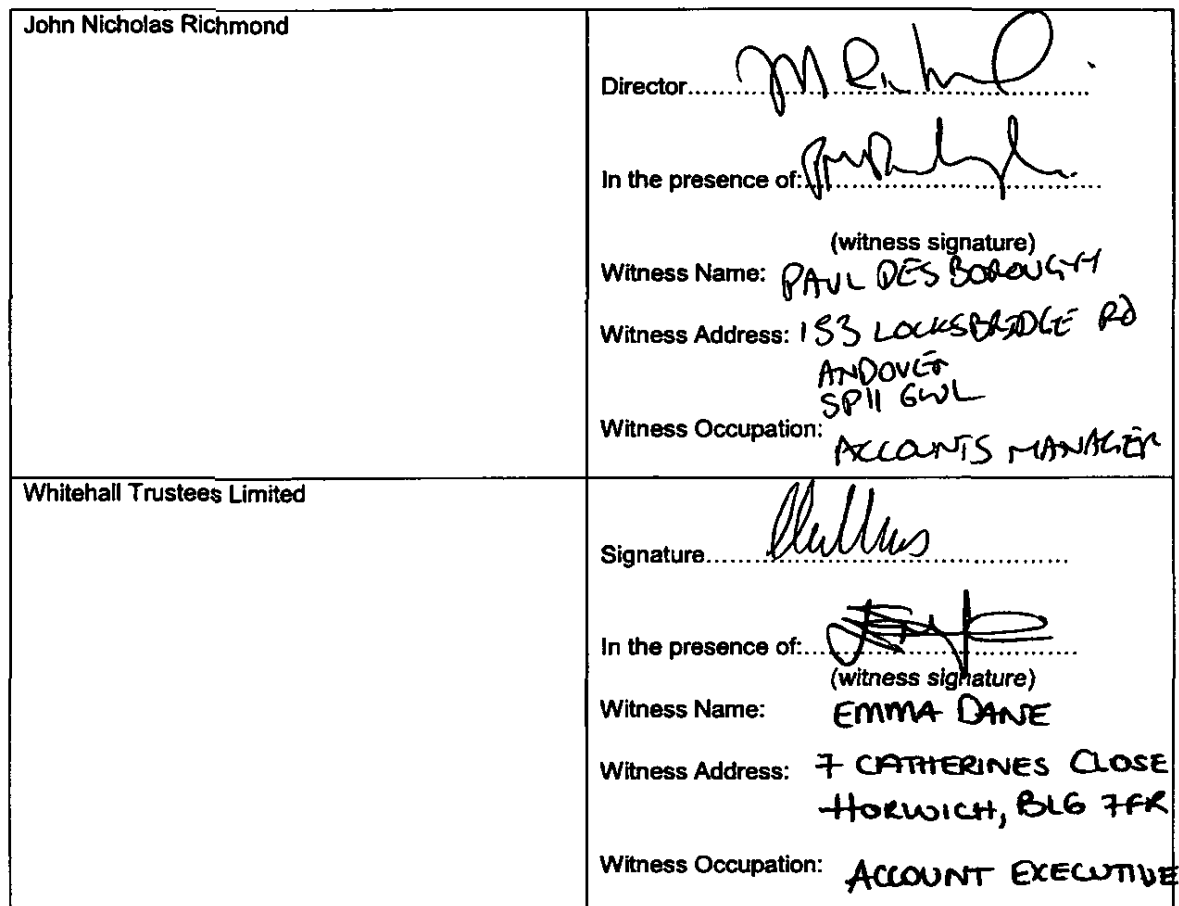 John Nicholas Richmond
Director
In the presence of:
(witness signature)
Witness Name: PAUL DESBOROUGH
Witness Address: 153 LOCKSBRIDGE RD
ANDOVER
SP11 6WL
Witness Occupation:
ACCOUNTS MANAGER
Whitehall Trustees Limited
Signature
In the presence of:
(witness signature)
Witness Name: EMMA DANE
Witness Address: 7 CATHERINES CLOSE
HORWICH, BL6 7FR
Witness Occupation: ACCOUNT EXECUTIVE